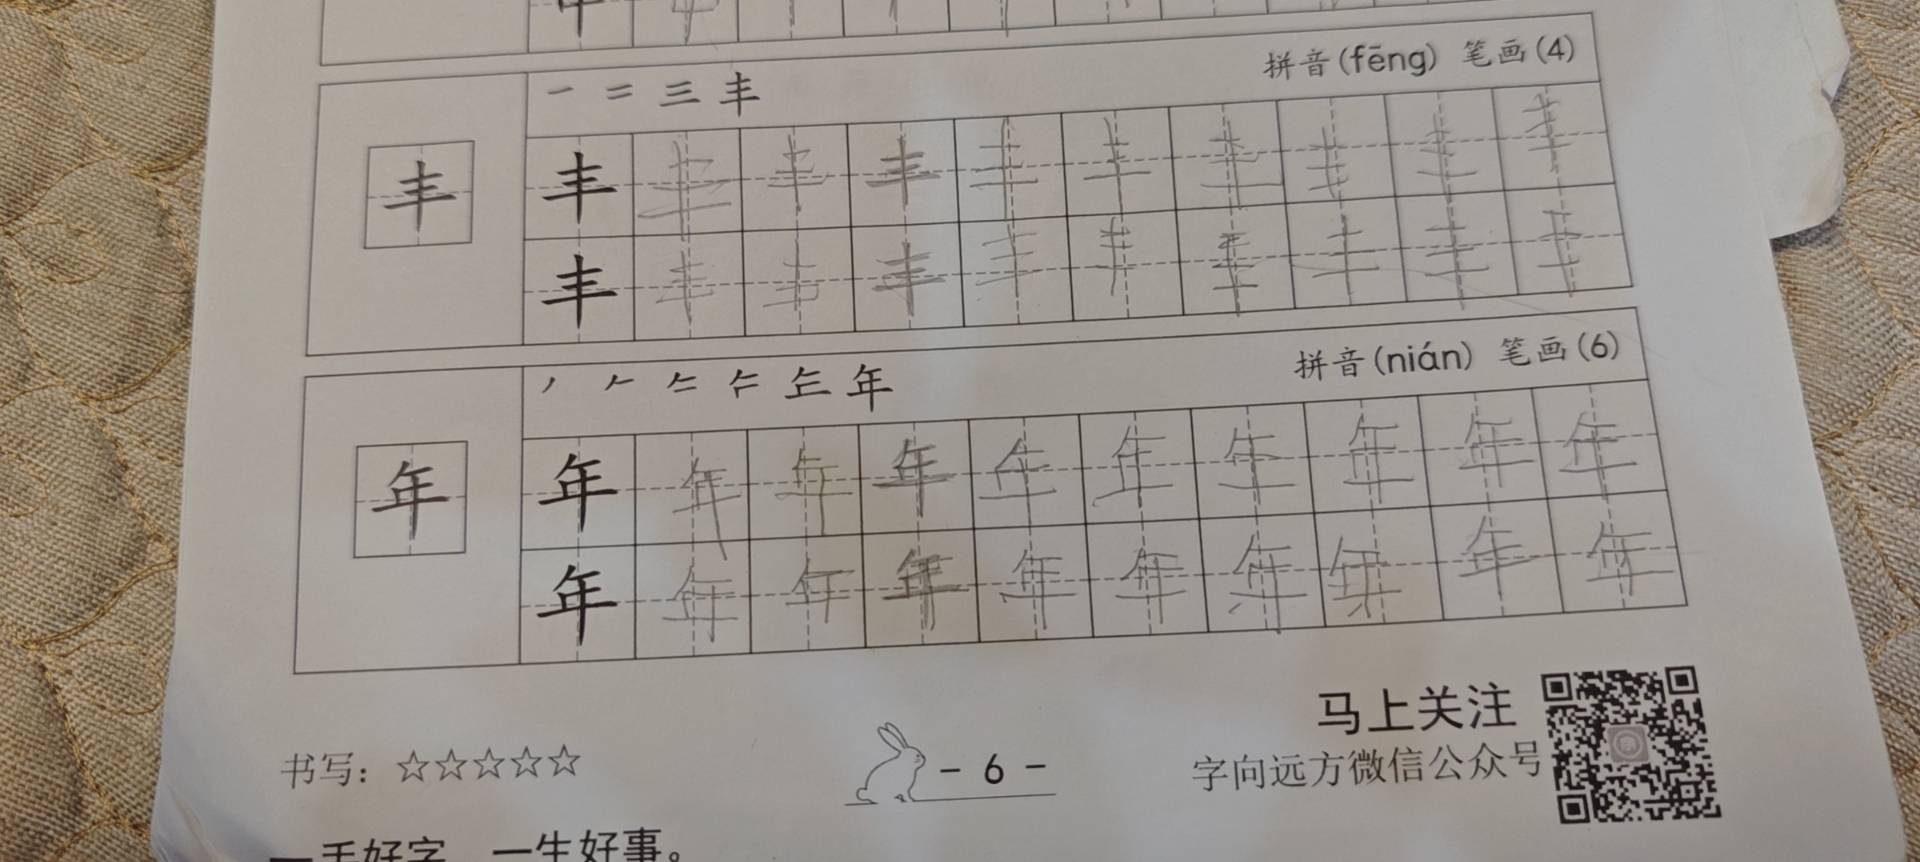 拼音(fēng) 笔画(4)
一 二 三 丰
丰 丰 丰 丰 丰 丰 丰 丰 丰 丰 丰
丰 丰 丰 丰 丰 丰 丰 丰 丰 丰
拼音(nián) 笔画(6)
年
年 年 年 年 年 年 年 年 年 年 年
年 年 年 年 年 年 年 年 年 年
马上关注
书写：☆☆☆☆☆
- 6 -
字向远方微信公众号
一手好字 一生好事。